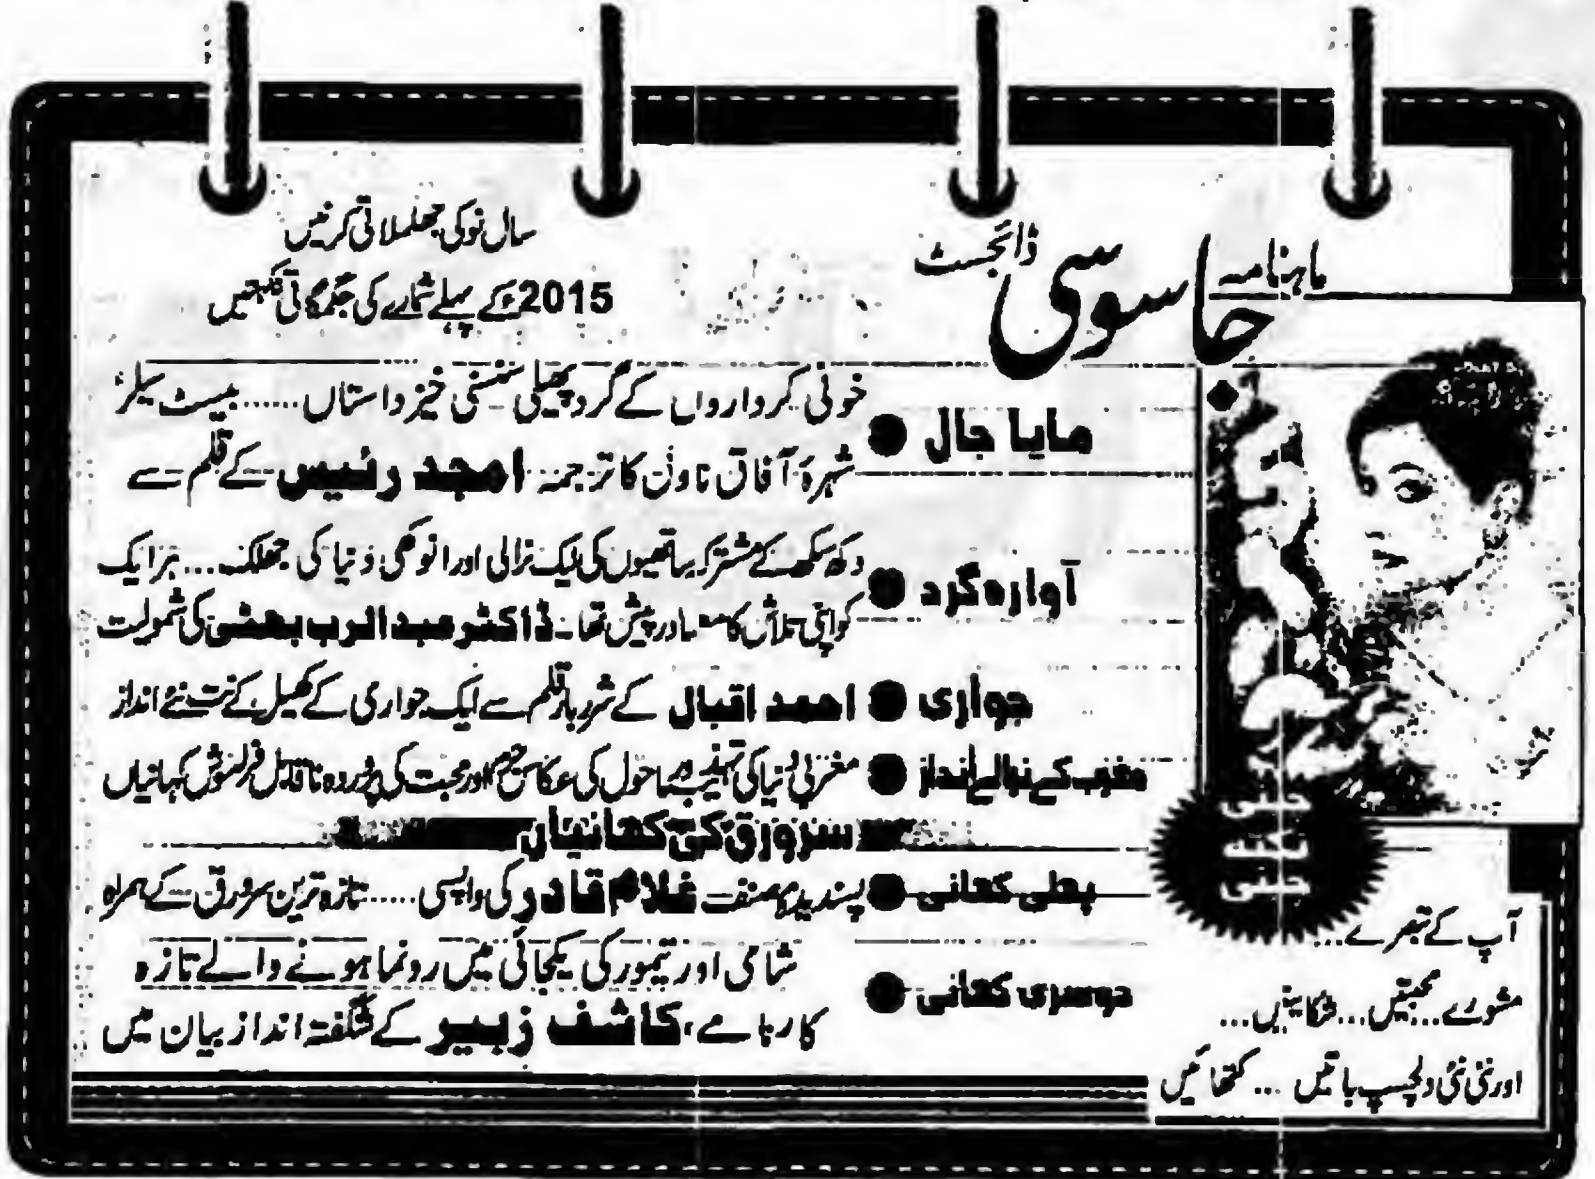 ماہنامہ جاسوسی ڈائجسٹ
سال نو کی جھلملاتی کرنیں
2015ء کے پہلے شمارے کی جگمگاتی
مایا جال ● خونی کرداروں کے گرد پھیلی سنسنی خیز داستاں ...... بیسٹ سیلر
شہرۂ آفاق ناول کا ترجمہ امجد رئیس کے قلم سے
آوارہ گرد ● دکھ سکھ کے مشترکہ ساتھیوں کی ایک نرالی اور انوکھی دنیا کی جھلک ... ہر ایک
کو اپنی تلاش کا درپیش تھا۔ ڈاکٹر عبدالرب بھٹی کی شمولیت
جواری ● احمد اقبال کے شرربار قلم سے ایک جواری کے کھیل کے نت نئے انداز
مغرب کے نرالے انداز ● مغربی دنیا کی تہذیب ماحول کی عکاس اور محبت کی ناقابل فراموش کہانیاں
سرورق کی کہانیاں
پہلی کہانی ● پسندیدہ مصنف غلام قادر کی واپسی ..... تازہ ترین سرورق کے ہمراہ
دوسری کہانی ● شامی اور تیمور کی یکجائی میں رونما ہونے والے تازہ
کارنامے، کاشف زبیر کے شگفتہ انداز بیان میں
چینی
نکتہ
چینی
آپ کے تبصرے ...
مشورے ... محبتیں ... شکایتیں ...
اور نئی نئی دلچسپ باتیں ... کتھائیں